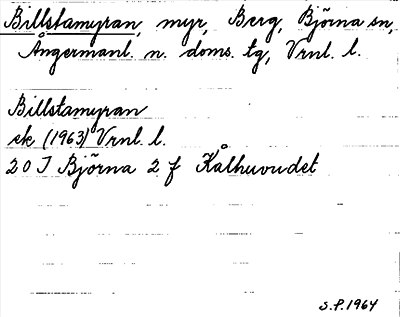 Billstamyran, myr, Berg, Björna sn,
Ångermanl. n. doms. tg, Vrnl. l.
Billstamyran
ek (1963) Vrnl. l.
20 I Björna 2 f Kålhuvudet
S.P. 1964